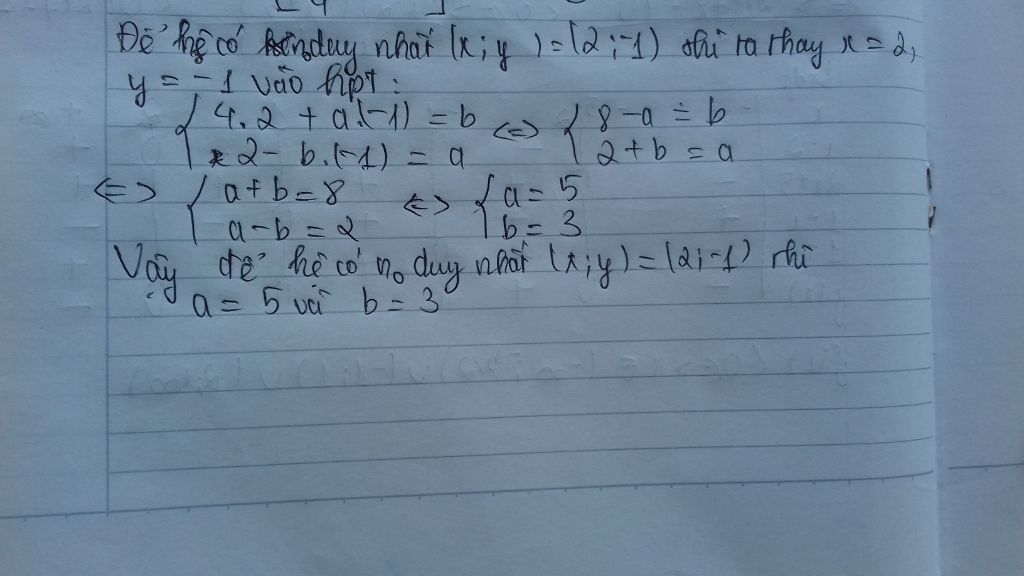 Để hệ có duy nhất (x;y) = (2;-1) thì ta thay x = 2,
y = -1 vào hpt:
{ 4.2 + a.(-1) = b <=> { 8 - a = b
{ 2 - b.(-1) = a { 2 + b = a
<=> { a + b = 8 <=> { a = 5
{ a - b = 2 { b = 3
Vậy để hệ có no duy nhất (x;y) = (2;-1) thì
a = 5 và b = 3